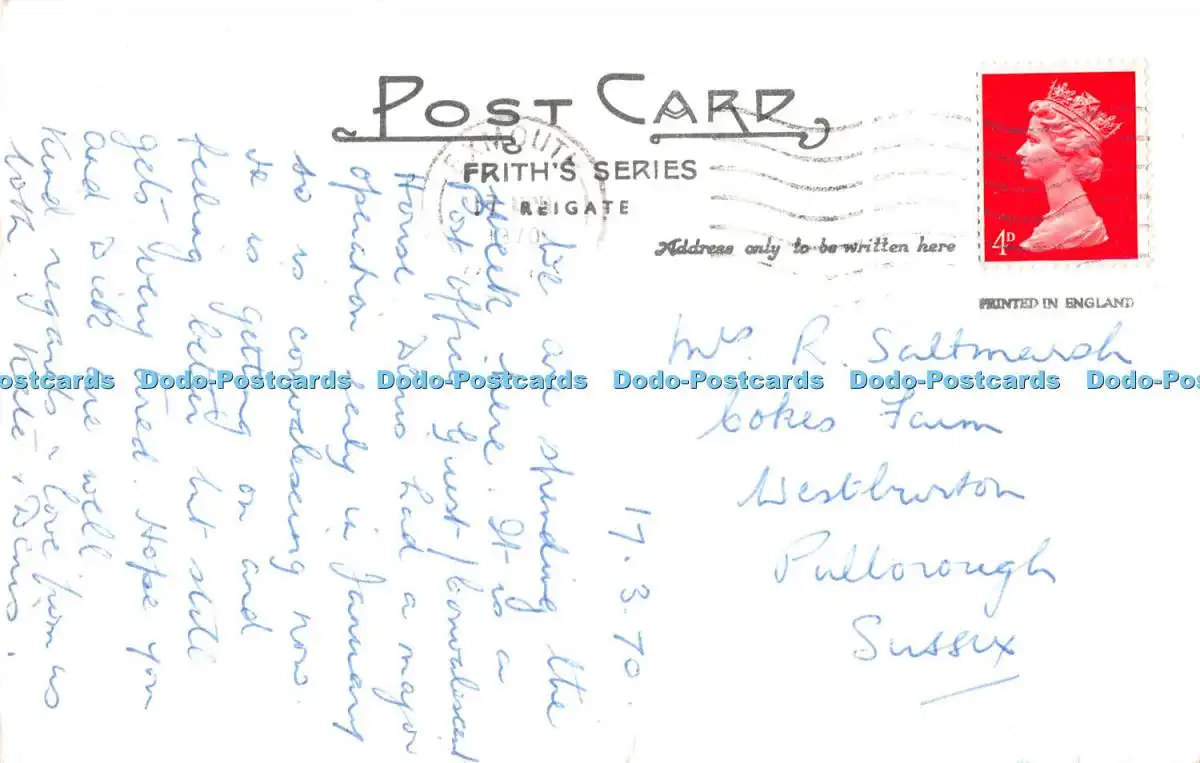 POST CARD
FRITH'S SERIES
REIGATE
EXMOUTH
17
1970
Address only to be written here
4D
PRINTED IN ENGLAND
17.3.70.
We are spending the
week here. It is a
Post Office Guest/Convalescent
House Denis had a major
operation early in January
so is convalescing now.
He is getting on and
feeling better but still
gets very tired. Hope you
and Dick are well
Kind regards & love from us
both. Kate & Denis.
Mrs. R Saltmarsh
Cokes Farm
Westburton
Pulborough
Sussex
Dodo-Postcards Dodo-Postcards Dodo-Postcards Dodo-Postcards Dodo-Postcards Dodo-Postcards